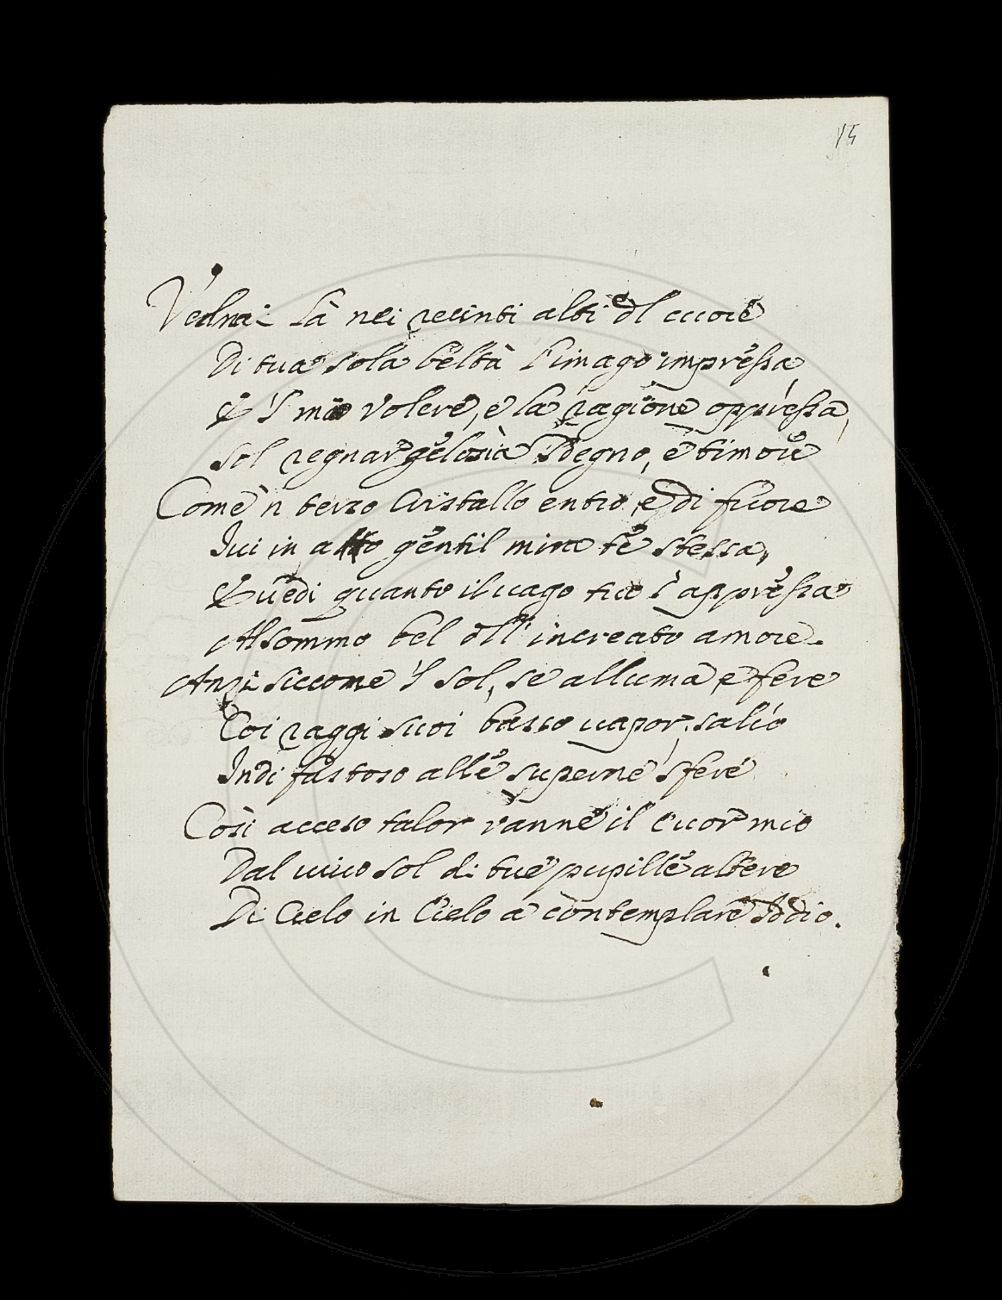 15
Vedrai là nei recinti alti dl cuore
Di tua sola beltà l'imago impressa
E 'l mio volere, e la ragione oppressa,
Sol regnar gelosia sdegno, e timore
Come 'n terzo Cristallo entro, e di fuore
Ivi in atto gentil mira te stessa,
E vedi quanto il vago tuo s'appressa
Al sommo bel dll' increato amore.
Anzi siccome 'l Sol, se alluma, e fere
Coi raggi suoi basso vapor, salio
Indi fastoso alle superne sfere
Così acceso talor vanne il cuor mio
Dal vivo sol di tue pupille altere
Di Cielo in Cielo a contemplare Iddio.